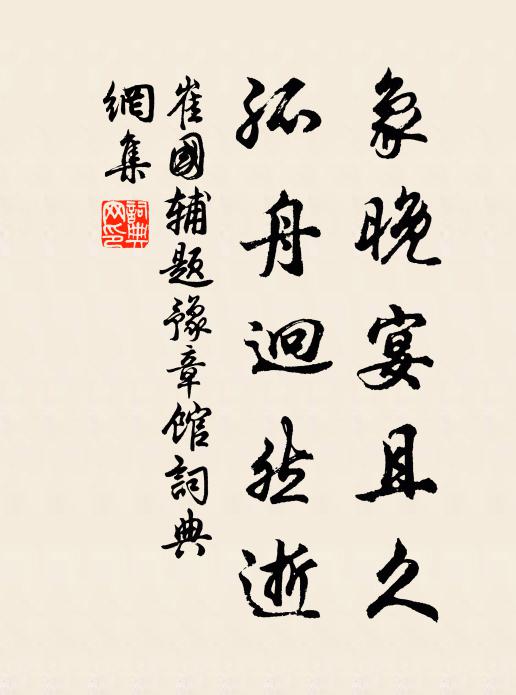 象晚宴且久
孤舟迥然逝
崔國輔題豫章館詞典
網集
詞典網印